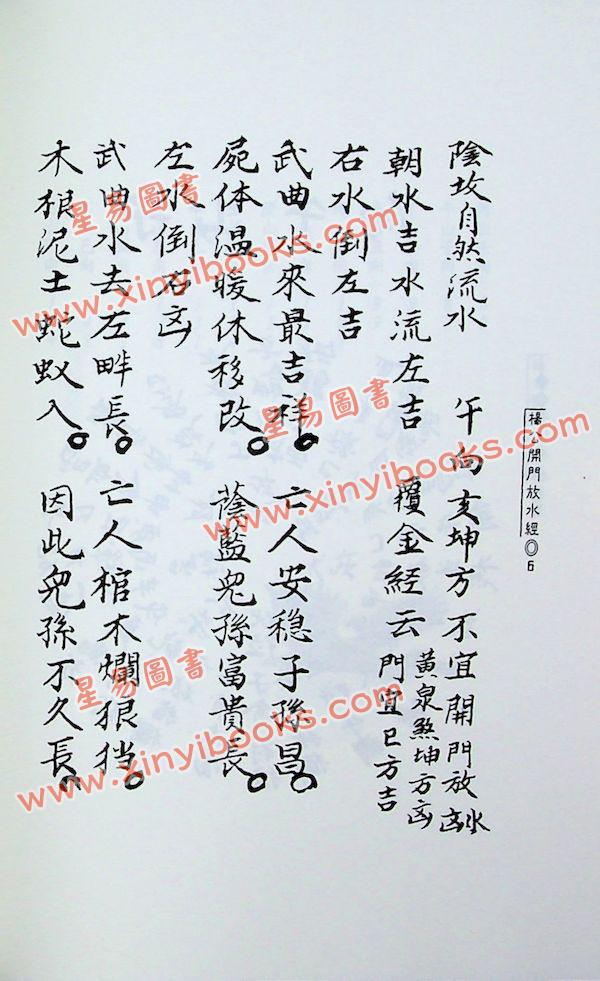 楊公開門放水經◎6
陰坟自然流水　午向亥坤方不宜開門放水凶
朝水吉水流左吉　金經云
黃泉煞坤方凶
門宜巳方吉
右水倒左吉
武曲水來最吉祥。亡人安穏子孫昌。
屍体温暖休移改。蔭藍兒孫富貴長。
左水倒右凶
武曲水去左畔長。亡人棺木爛狼挡。
木根泥土蛇蚁入。因此兒孫不久長。
星易圖書
www.xinyibooks.com
星易圖書
www.xinyibooks.com
星易圖書
www.xinyibooks.com